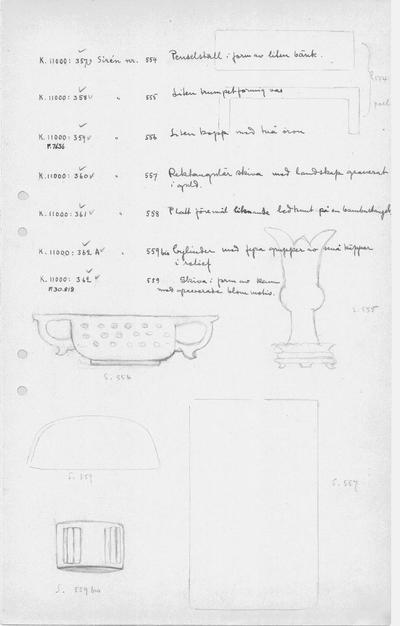 K. 11000: 357 Sirén nr. 554 Penselställ i form av liten bänk.
S. 554
K. 11000: 358 " 555 Liten trumpetformig vas
K. 11000: 359 " 556 Liten kopp med två öron
K. 11000: 360 " 557 Rektangulär skiva med landskap graverat
i guld.
K. 11000: 361 " 558 Platt föremål liknande
K. 11000: 362 A " 559 bis Cylinder med fyra grupper av små käppar
i relief
K. 11000: 362 559 Skiva i form av kam
med graverade blom motiv.
S. 555
S. 556
S. 559
S. 557
S. 559 bis